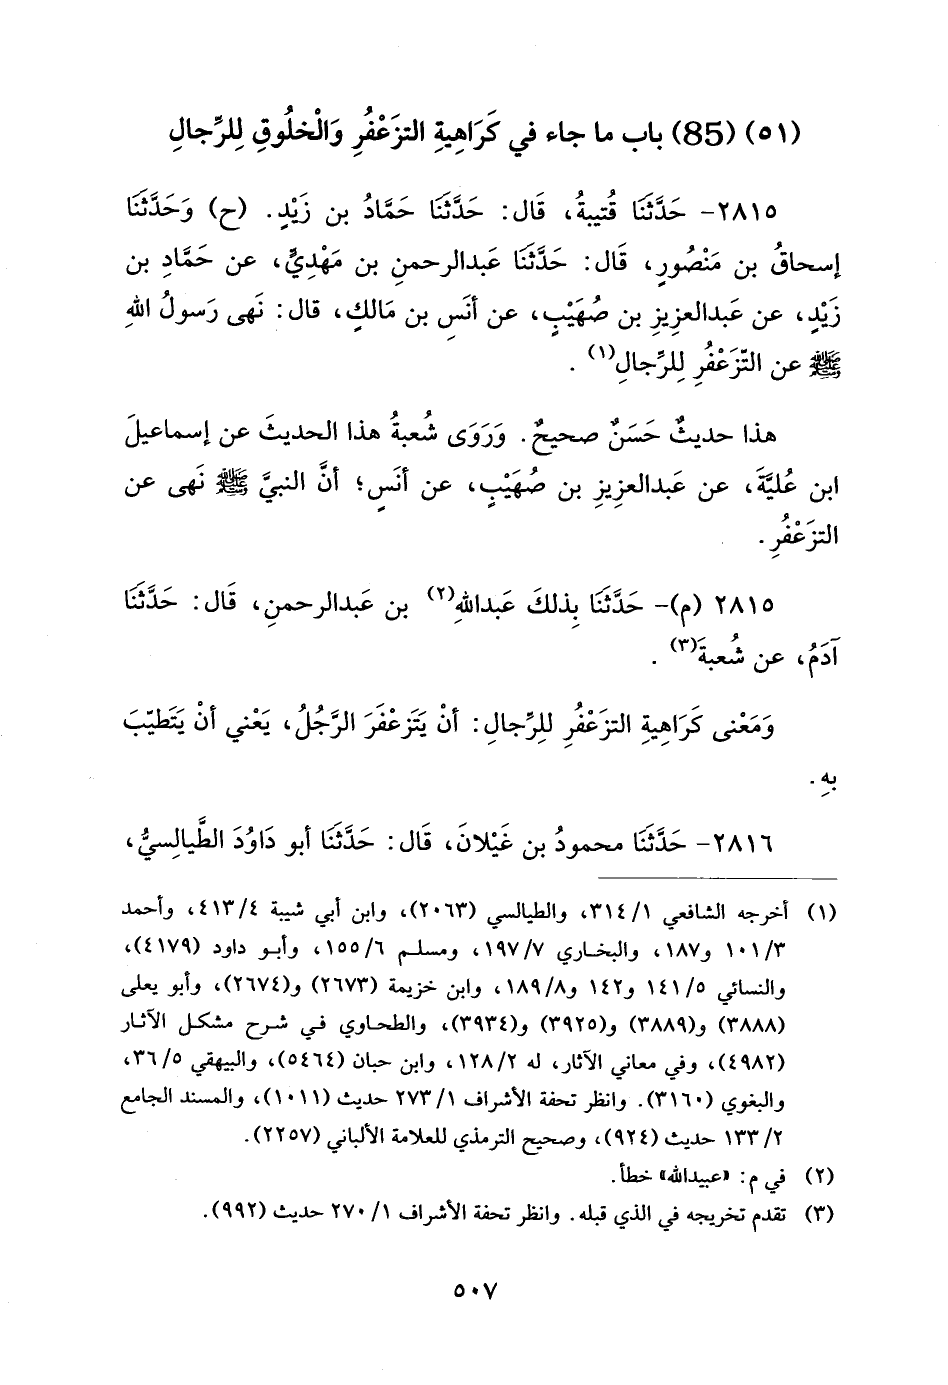 (٥١) (85) باب ما جاء في كَرَاهِيةِ التزَعْفُرِ وَالْخلُوقِ لِلرِّجالِ
٢٨١٥- حَدَّثَنَا قُتيبةُ، قَال: حَدَّثَنَا حَمَّادُ بن زَيْدٍ. (ح) وَحَدَّثَنَا
إسحاقُ بن مَنْصُورٍ، قَال: حَدَّثَنَا عَبدالرحمنِ بن مَهْدِيٍّ، عن حَمَّادِ بن
زَيْدٍ، عن عَبدالعزيزِ بن صُهَيْبٍ، عن أنَسِ بن مَالكٍ، قال: نَهى رَسولُ اللهِ
ﷺ عن التّزَعْفُرِ لِلرِّجالِ(١) .
هذا حديثٌ حَسَنٌ صحيحٌ. وَرَوَى شُعبةُ هذا الحديثَ عن إسماعيلَ
ابن عُليَّةَ، عن عَبدالعزيزِ بن صُهَيْبٍ، عن أنَسٍ؛ أنَّ النبيَّ ﷺ نَهى عن
التزَعْفُرِ .
٢٨١٥ (م)- حَدَّثَنَا بِذلكَ عَبداللهِ(٢) بن عَبدالرحمنِ، قَال: حَدَّثَنَا
آدَمُ، عن شُعبةَ(٣) .
وَمَعْنى كَرَاهِيةِ التزَعْفُرِ للرِّجالِ: أنْ يَتَزعْفَرَ الرَّجُلُ، يَعْني أنْ يَتَطيّبَ
بهِ .
٢٨١٦- حَدَّثَنَا محمودُ بن غَيْلانَ، قَال: حَدَّثَنَا أبو دَاوُدَ الطَّيالِسيُّ،
(١) أخرجه الشافعي ٣١٤/١، والطيالسي (٢٠٦٣)، وابن أبي شيبة ٤١٣/٤، وأحمد
١٠١/٣ و١٨٧، والبخاري ١٩٧/٧، ومسلم ١٥٥/٦، وأبو داود (٤١٧٩)،
والنسائي ١٤١/٥ و١٤٢ و١٨٩/٨، وابن خزيمة (٢٦٧٣) و(٢٦٧٤)، وأبو يعلى
(٣٨٨٨) و(٣٨٨٩) و(٣٩٢٥) و(٣٩٣٤)، والطحاوي في شرح مشكل الآثار
(٤٩٨٢)، وفي معاني الآثار، له ١٢٨/٢، وابن حبان (٥٤٦٤)، والبيهقي ٣٦/٥،
والبغوي (٣١٦٠). وانظر تحفة الأشراف ٢٧٣/١ حديث (١٠١١)، والمسند الجامع
١٣٣/٢ حديث (٩٢٤)، وصحيح الترمذي للعلامة الألباني (٢٢٥٧).
(٢) في م: «عبيدالله» خطأ.
(٣) تقدم تخريجه في الذي قبله. وانظر تحفة الأشراف ٢٧٠/١ حديث (٩٩٢).
٥٠٧